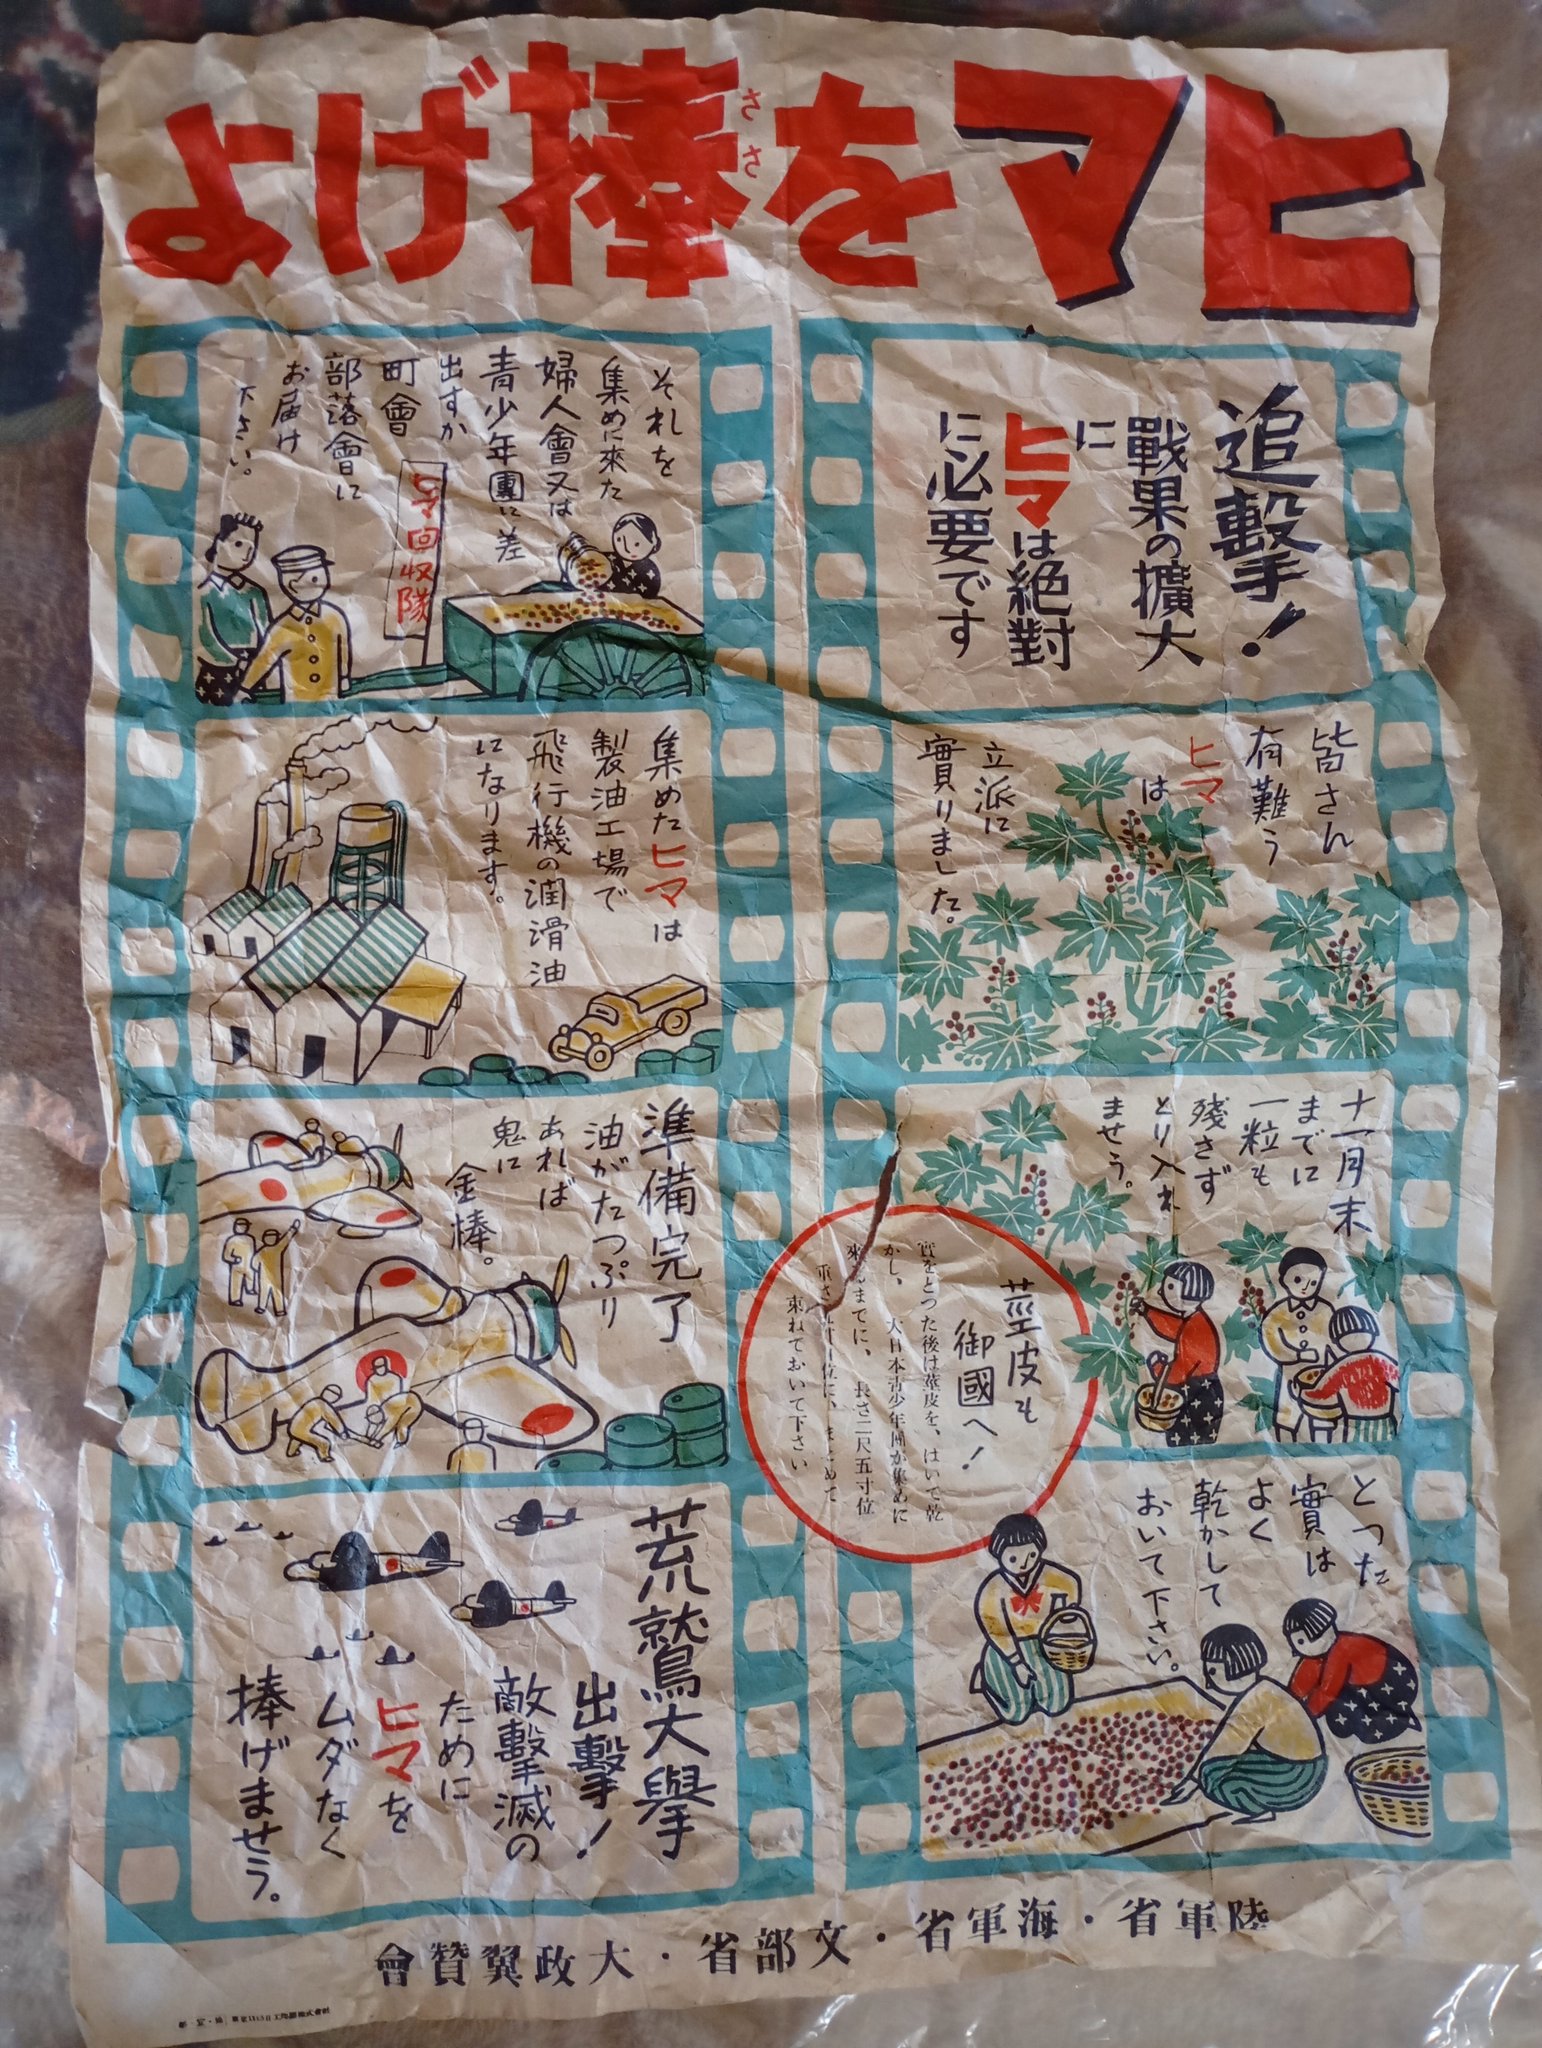 ヒマを捧げよ
ささ
追擊!
戰果の擴大
に
ヒマは絕對
に必要です
皆さん
有難う
ヒマ
は
立派に
實りました。
十一月末
までに
一粒も
殘さず
とり入れ
ませう。
とつた
實は
よく
乾かして
おいて下さい。
莖皮も
御國へ!
實をとつた後は莖皮を、はいで乾
かし、大日本青少年團が集めに
までに、長さ二尺五寸位
位に、まとめて
束ねておいて下さい
それを
集めに來た
婦人會又は
青少年團に差
出すか
町會
部落會に
お届け
下さい。
ヒマ回収隊
集めたヒマは
製油工場で
飛行機の潤滑油
になります。
準備完了
油がたつぷり
あれば
鬼に
金棒。
荒鷲大擧
出擊!
敵擊滅の
ために
ヒマを
ムダなく
捧げませう。
陸軍省・海軍省・文部省・大政翼贊會